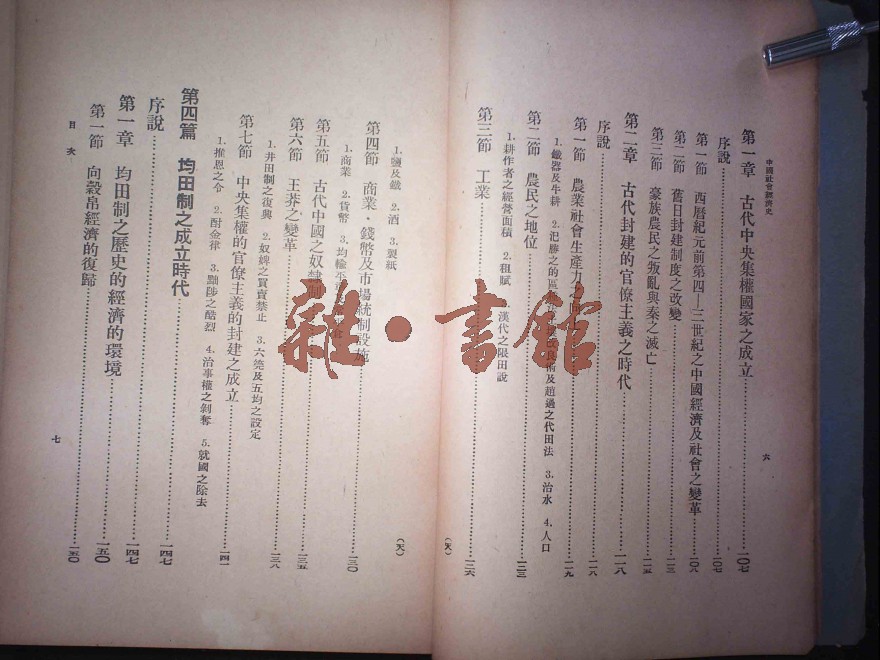 中國社會經濟史
六
第一章 古代中央集權國家之成立……一〇七
序說……一〇七
第一節 西曆紀元前第四—三世紀之中國經濟及社會之變革……一〇八
第二節 舊日封建制度之改變……一一三
第三節 豪族農民之叛亂與秦之滅亡……一一五
第二章 古代封建的官僚主義之時代……一一八
序說……一一八
第一節 農業社會生產力……一一九
1.鐵器及牛耕 2.氾勝之的區 及趙過之代田法 3.治水 4.人口
第二節 農民之地位……一二三
1.耕作者之經營面積 2.租賦 漢代之限田說
第三節 工業……一二六
1.鹽及鐵 2.酒 3.製紙
第四節 商業、錢幣及市場統制設施……一三〇
1.商業 2.貨幣 3.均輸
第五節 古代中國之奴隸制……一三五
第六節 王莽之變革……一三八
1.井田制之復興 2.奴婢之買賣禁止 3.六筦及五均之設定
第七節 中央集權的官僚主義的封建之成立……一四一
1.推恩之令 2.酎金律 3.黜陟之酷烈 4.治事權之剝奪 5.就國之除去
第四篇 均田制之成立時代……一四七
序說……一四七
第一章 均田制之歷史的經濟的環境……一四七
第一節 向穀帛經濟的復歸……一五〇
目次
七
雜·書館